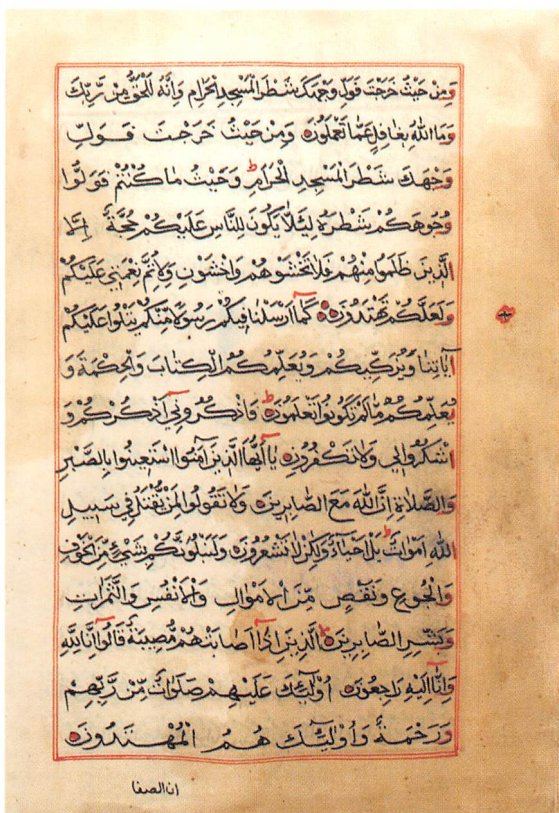 وَمِنْ حَيْثُ خَرَجْتَ فَوَلِّ وَجْهَكَ شَطْرَ الْمَسْجِدِ الْحَرَامِ وَاِنَّهُ لَلْحَقُّ مِنْ رَبِّكَ
وَمَا اللّٰهُ بِغَافِلٍ عَمَّا تَعْمَلُونَ وَمِنْ حَيْثُ خَرَجْتَ فَوَلِّ
وَجْهَكَ شَطْرَ الْمَسْجِدِ الْحَرَامِ ط وَحَيْثُ مَا كُنْتُمْ فَوَلُّوا
وُجُوهَكُمْ شَطْرَهُ لِئَلَّا يَكُونَ لِلنَّاسِ عَلَيْكُمْ حُجَّةٌ اِلَّا
الَّذِينَ ظَلَمُوا مِنْهُمْ فَلَا تَخْشَوْهُمْ وَاخْشَوْنِ وَلِاُتِمَّ نِعْمَتِي عَلَيْكُمْ
وَلَعَلَّكُمْ تَهْتَدُونَ كَمَا اَرْسَلْنَا فِيكُمْ رَسُولًا مِنْكُمْ يَتْلُوا عَلَيْكُمْ
اٰيَاتِنَا وَيُزَكِّيكُمْ وَيُعَلِّمُكُمُ الْكِتَابَ وَالْحِكْمَةَ وَ
يُعَلِّمُكُمْ مَا لَمْ تَكُونُوا تَعْلَمُونَ ط فَاذْكُرُونِي اَذْكُرْكُمْ وَ
اشْكُرُوا لِي وَلَا تَكْفُرُونِ يَا اَيُّهَا الَّذِينَ اٰمَنُوا اسْتَعِينُوا بِالصَّبْرِ
وَالصَّلَاةِ اِنَّ اللّٰهَ مَعَ الصَّابِرِينَ وَلَا تَقُولُوا لِمَنْ يُقْتَلُ فِي سَبِيلِ
اللّٰهِ اَمْوَاتٌ ط بَلْ اَحْيَاءٌ وَلٰكِنْ لَا تَشْعُرُونَ وَلَنَبْلُوَنَّكُمْ بِشَيْءٍ مِنَ الْخَوْفِ
وَالْجُوعِ وَنَقْصٍ مِنَ الْاَمْوَالِ وَالْاَنْفُسِ وَالثَّمَرَاتِ
وَبَشِّرِ الصَّابِرِينَ الَّذِينَ اِذَا اَصَابَتْهُمْ مُصِيبَةٌ قَالُوا اِنَّا لِلّٰهِ
وَاِنَّا اِلَيْهِ رَاجِعُونَ اُولٰئِكَ عَلَيْهِمْ صَلَوَاتٌ مِنْ رَبِّهِمْ
وَرَحْمَةٌ وَاُولٰئِكَ هُمُ الْمُهْتَدُونَ
ان الصفا